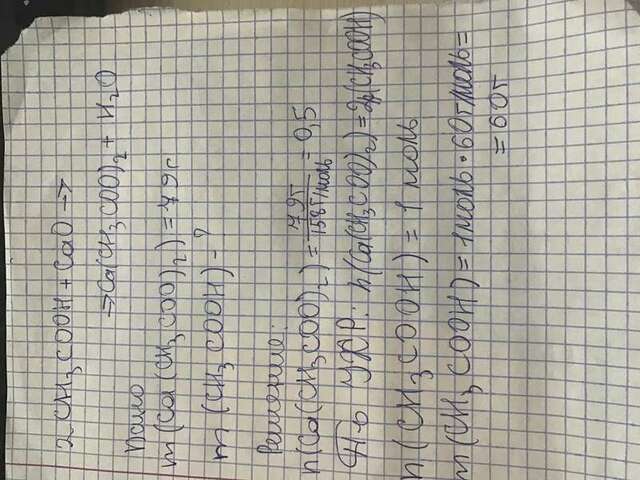 2CH₃COOH + CaO →
→ Ca(CH₃COO)₂ + H₂O
Дано
m(Ca(CH₃COO)₂) = 79г
m(CH₃COOH) - ?
Решение:
n(Ca(CH₃COO)₂) = 79г/158г/моль = 0,5
УХР: n(Ca(CH₃COO)₂) = 2n(CH₃COOH)
n(CH₃COOH) = 1 моль
m(CH₃COOH) = 1моль · 60г/моль =
= 60г